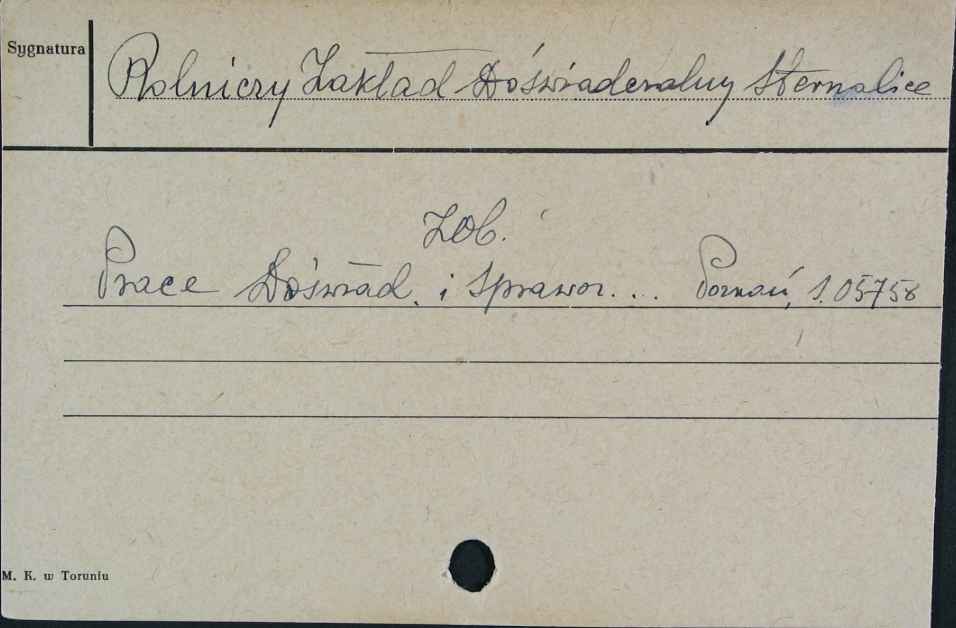 Sygnatura
Rolniczy Zakład Doświadczalny Sternalice
Zob.
Prace Doświad. i Sprawoz. ... Poznań, 1.05758
M. K. w Toruniu